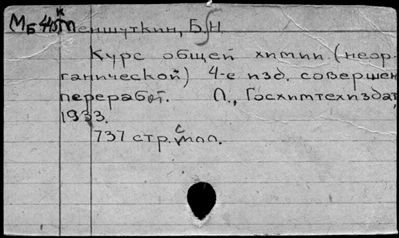 Меншуткин, Б.Н.
Курс общей химии (неор-
ганической) 4-е изд. совершен
переработ. Л., Госхимтехиздат,
1933.
737 стр. с илл.